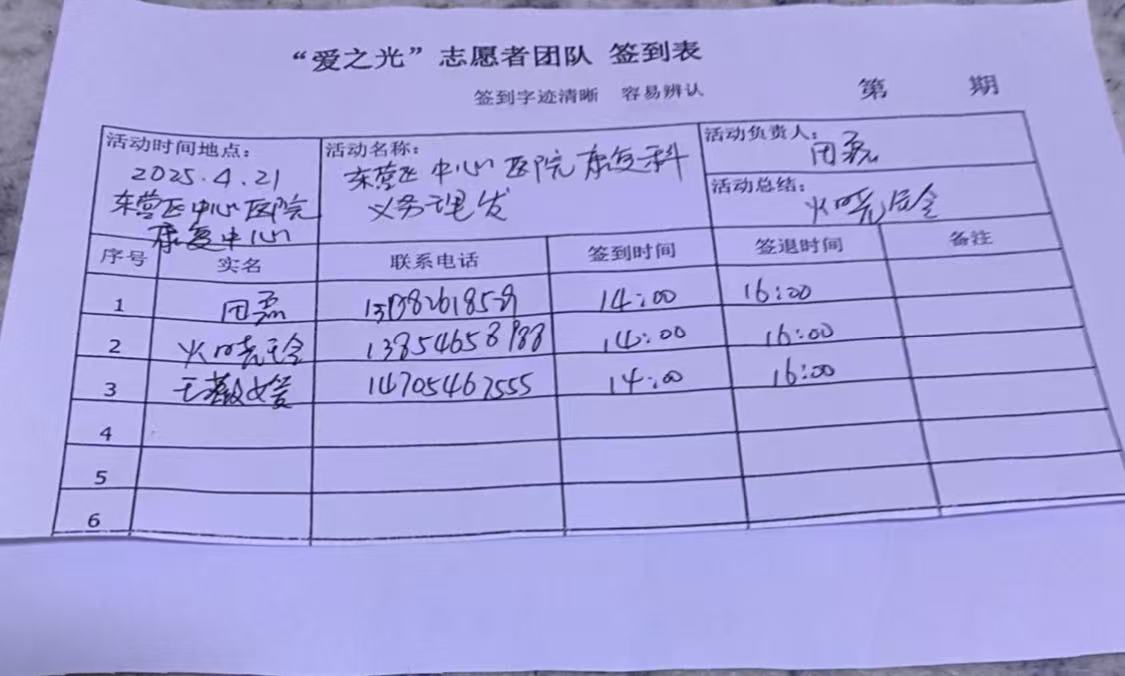 “爱之光”志愿者团队 签到表
签到字迹清晰 容易辨认
第 期
活动时间地点:
2025.4.21
东营区中心医院
康复中心
活动名称:
东营区中心医院康复科
义务理发
活动负责人:
田磊
活动总结:
序号 实名 联系电话 签到时间 签退时间 备注
1 田磊 14:00 16:00
2 13854658988 14:00 16:00
3 王 14705467555 14:00 16:00
4
5
6